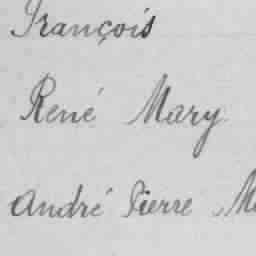 François
René Mary
André Pierre M